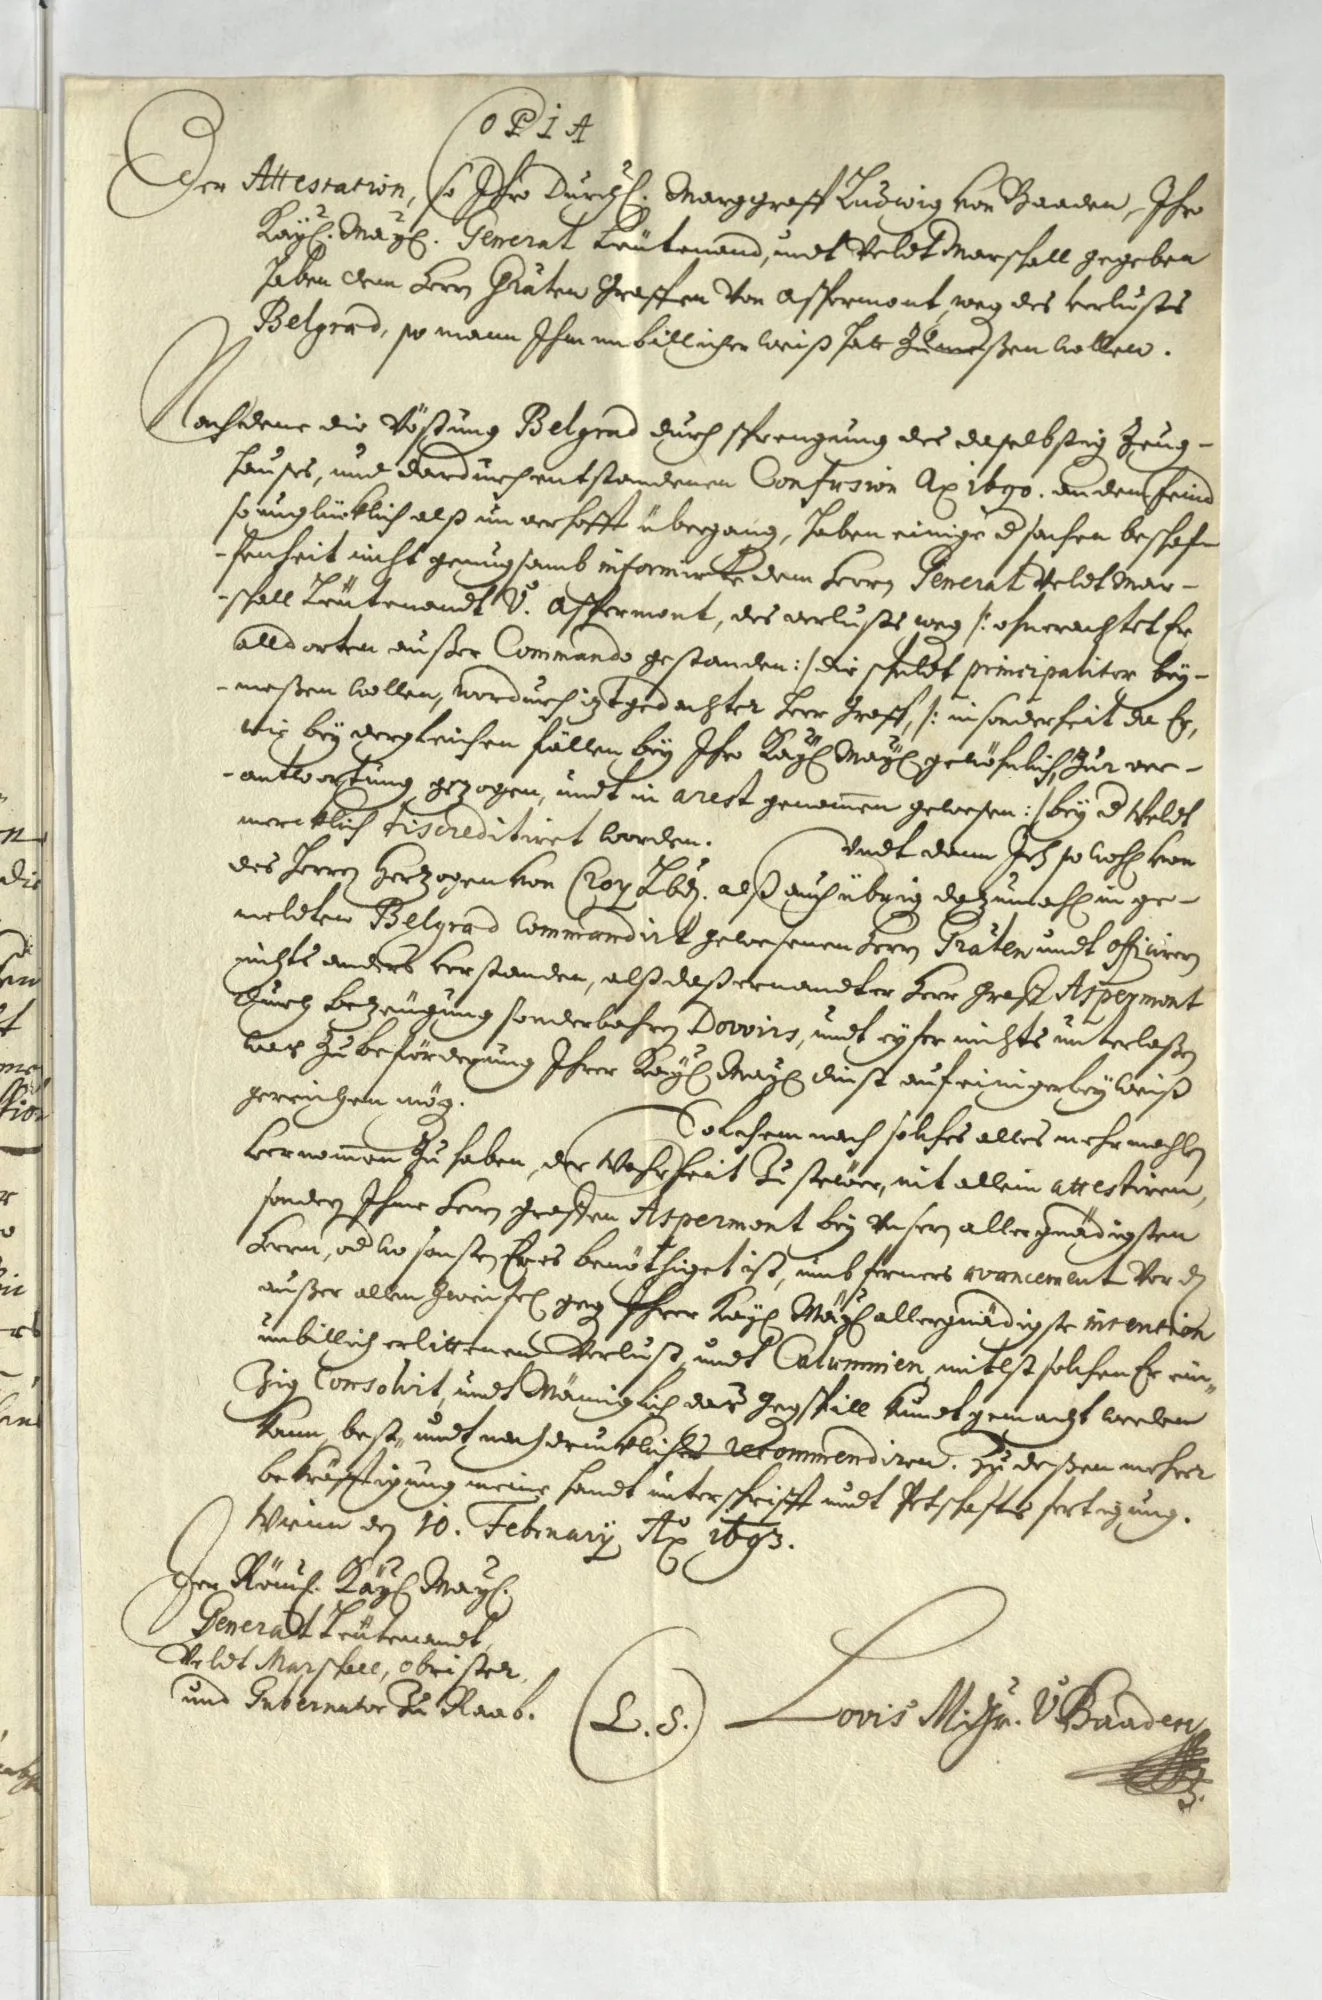 COPIA
Der Attestation, so Ihro Durchl. Marggraff Ludwig von Baaden, Ihro
Kayl. Mayl. General Leütenand, undt Veldt Marschall gegeben
haben dem Herrn Graffen von Aspermont, weg des verlusts
Belgrad, so mann Ihm unbillicher weiß hat zumeßen wollen.
Nachdeme die Vöstung Belgrad durch sprengung des daselbstig Zeug-
hauses, und dardurch entstandenen Confusion Ao 1690. an den feind
so unglücklich alß unverhofft übergang, haben einige d sachen beschaf-
-fenheit nicht genugsamb informirte dem Herrn General Veldt Mar-
-schall Leütenandt V. Aspermont, des verlusts weg /: ohnerachtet Er
alldorten außer Commando gestanden :/ die schuldt principaliter bey-
-meßen wollen, wordurch itztgedachter Herr Graff, /: insonderheit da Er,
wie bey dergleichen fällen bey Ihro Kayl Mayl gewöhnlich, zur ver-
-antwortung gezogen, undt in arest genommen gewesen :/ bey d Weldt
mercklich discreditiret worden. Undt dann Ich so wohl von
des Herrn Hertzogen von Croy Lbd. alß auch übrig dazumahl in ge-
meldten Belgrad Commandirt gewesenen Herrn undt officirern
nichts anders verstanden, alß daß ernandter Herr Graff Aspermont
durch bezeügung sonderbahren Dovoirs, undt eyfer nichts unterlaßen
was zu beförderung Ihrer Kayl Mayl dinst auf einigerley weiß
gereichen mög.
Solchem nach solches alles mehrmahln
vernommen zu haben, der Wahrheit zu steüer, nit allein attestiren,
sondern Ihme Herrn Graffen Aspermont bey Unsern allergnädigsten
Herrn, od wo sonsten Er es benöthiget ist, umb ferners avancement
außer allem zweifel geg Ihrer Kayl Mayl allergnädigste intention
unbillich erlittenem Verlust, undt Calumnien, mitlst solchen Er ein-
zig Consolirt, undt Männiglich das gegspill kundt gemacht werden
kann, best, undt nachdrucklichst recommendiren. Zu deßen mehrer
bekräfftigung meine handt unterschrifft undt Petschaffts fertigung.
Wienn den 10. February Ao 1693.
Der Röm. Kayl Mayl.
General Leütenandt,
Veldt Marschall, Obrister,
und Gubernator zu Raab.
(L.S.)
Lovis M. Gr. V. Baaden